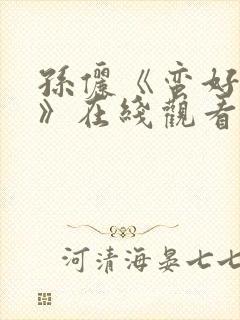 孫儷《蛮好
》在綫觀看
河清海晏七七